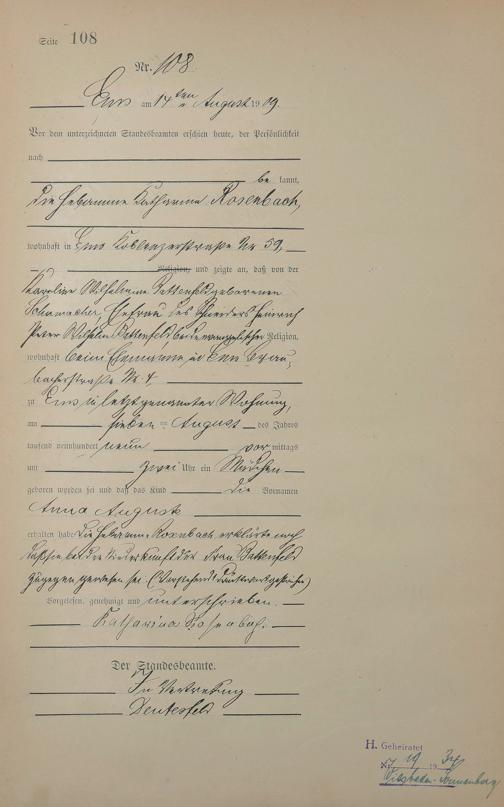 Seite 108
Nr. 108
Ems am 14ten August 1909.
Vor dem unterzeichneten Standesbeamten erschien heute, der Persönlichkeit
nach
be kannt,
die Hebamme Katharina Rosenbach,
wohnhaft in Ems Koblenzerstraße Nr 59,
Religion, und zeigte an, daß von der
Karoline Wilhelmine Pattenfeld geborenen
Schumacher, Ehefrau des Heinrich
Peter Wilhelm Pattenfeld beide evangelischer Religion,
wohnhaft beim Ehemanne, in Ems Brau-
bacherstraße Nr. 4
zu Ems in letztgenannter Wohnung,
am sieben = August des Jahres
tausend neunhundert neun vor mittags
um zwei Uhr ein Mädchen
geboren worden sei und daß das Kind die Vornamen
Anna Auguste
erhalten habe. Die Hebamme Rosenbach erklärte noch
daß sie bei der Niederkunft der Frau Pattenfeld
zugegen gewesen sei (Vorstehend Druckworte gestrichen)
Vorgelesen, genehmigt und unterschrieben.
Katharina Rosenbach.
Der Standesbeamte.
In Vertretung
H. Geheiratet
Nr. 19 19
Wiesbaden-Sonnenberg